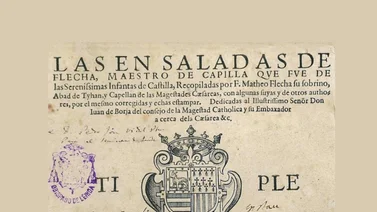 LAS EN SALADAS DE
FLECHA, MAESTRO DE CAPILLA QVE FVE DE
las Serenissimas Infantas de Castilla, Recopiladas por F. Matheo Flecha su sobrino,
Abad de Tyhan, y Capellan de las Magestades Cæsareas, con algunas suyas y de otros autho
res, por el mesmo corregidas y echas estampar. Dedicadas al Illustrissimo Señor Don
Iuan de Borja del consejo de la Magestad Catholica y su Embaxador
a cerca dela Cæsarea &c,
TI PLE